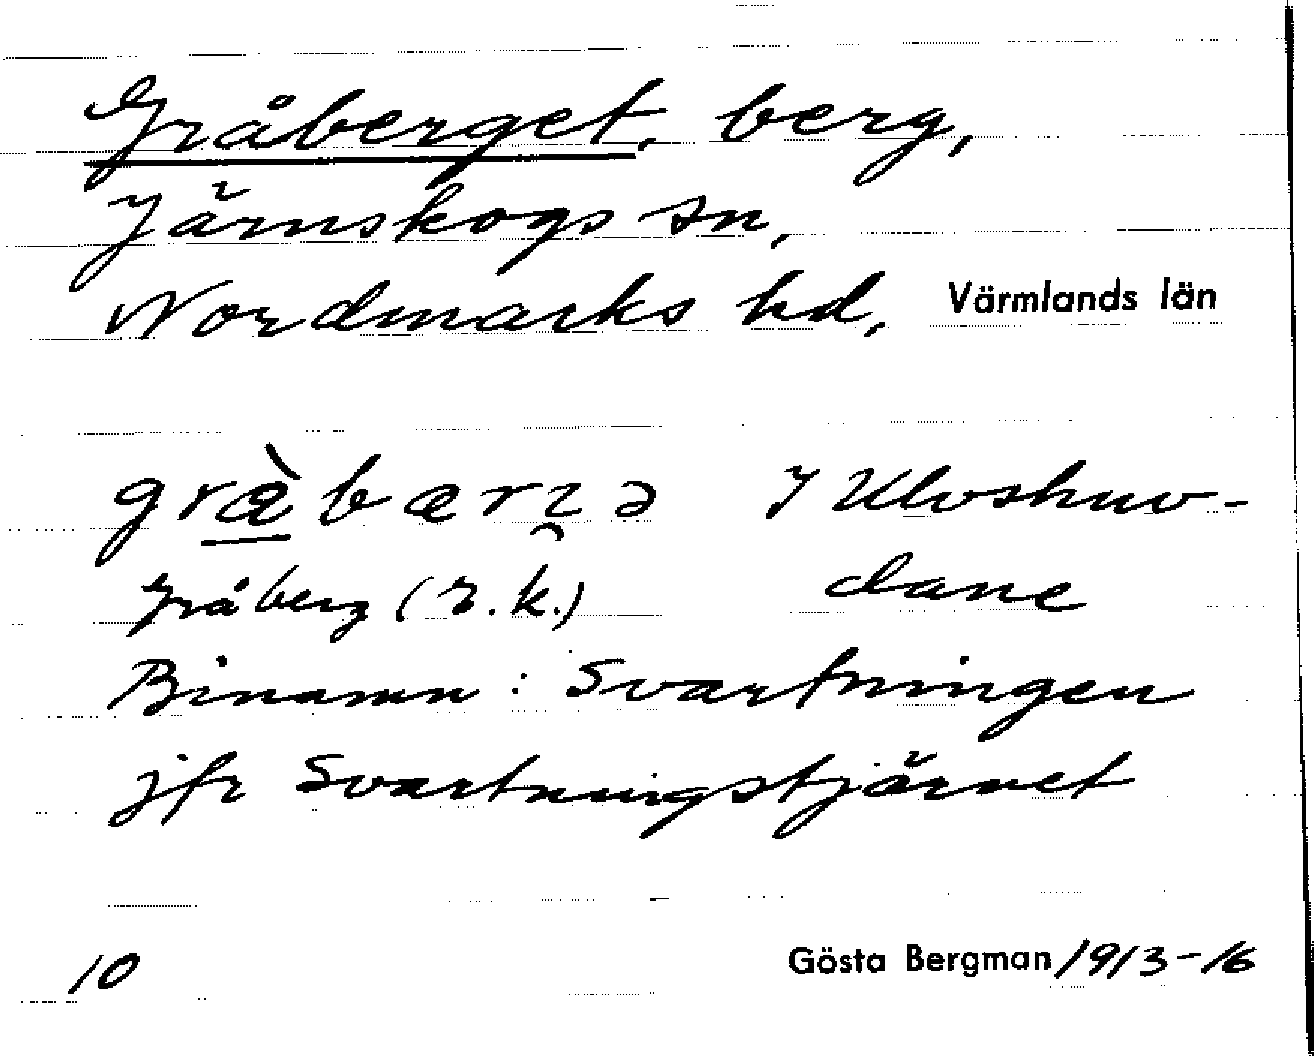 Gråberget, berg,
Järnskogs sn,
Nordmarks hd, Värmlands län
Gråberg (r.k.)
Binamn: Svartningen
jfr Svartningstjärnet
10 Gösta Bergman 1913-16